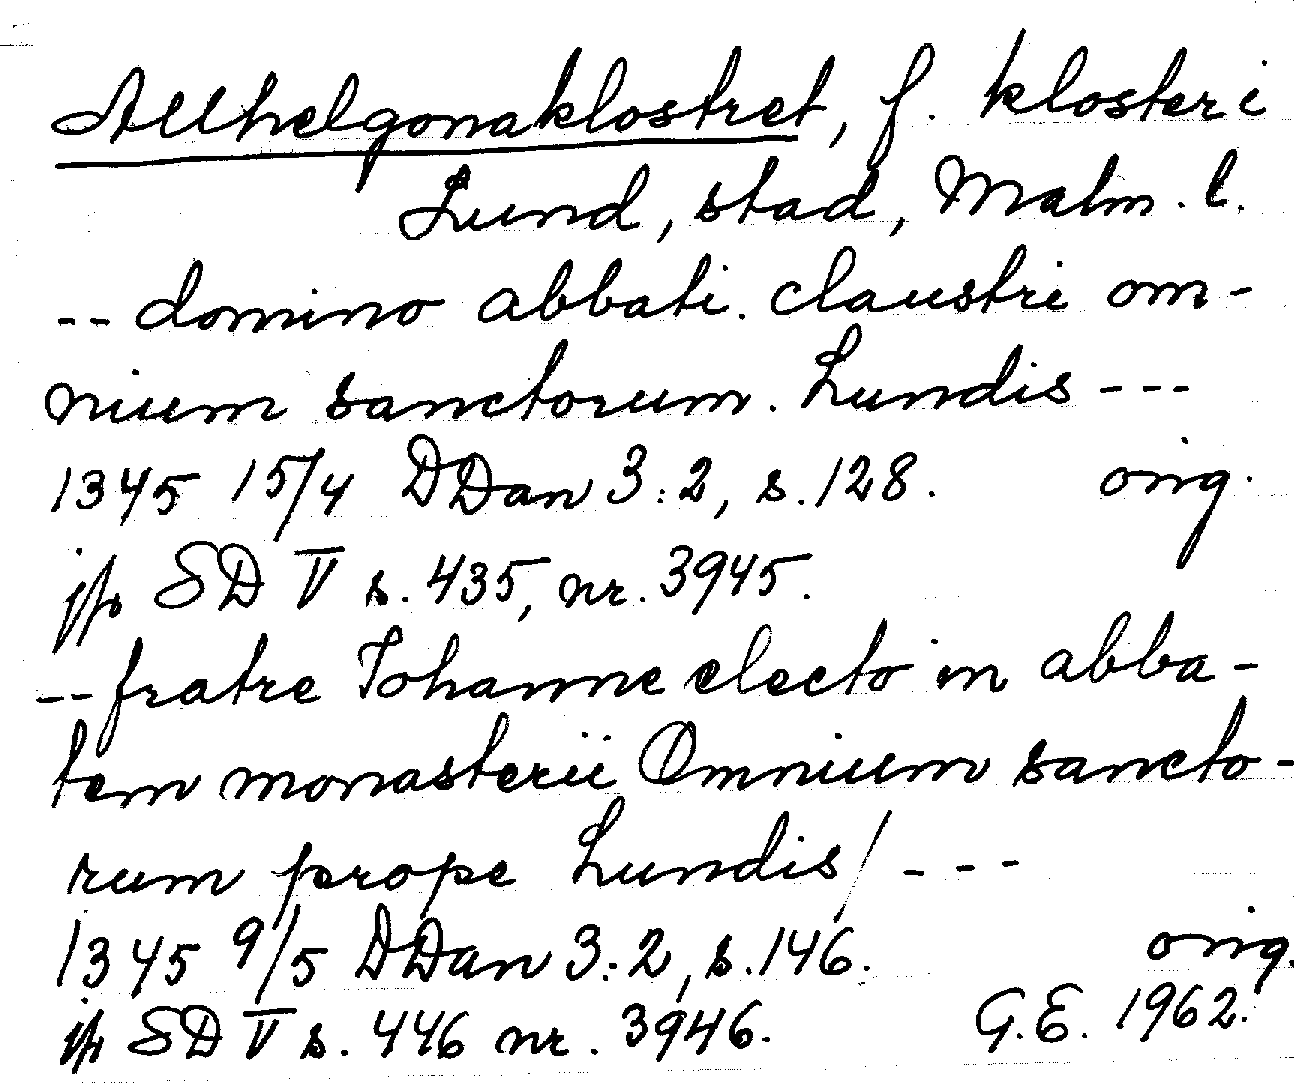 Allhelgonaklostret, f. kloster i
Lund, stad, Malm. l.
-- domino abbati. claustri om-
nium sanctorum. Lundis ---
1345 15/4 DDan 3:2, s. 128. orig.
jfr SD V s. 435, nr. 3945.
-- fratre Iohanne electo in abba-
tem monasterii Omnium sancto-
rum prope Lundis/ ---
1345 9/5 DDan 3:2, s. 146. orig.
jfr SD V s. 446 nr. 3946. G.E. 1962.